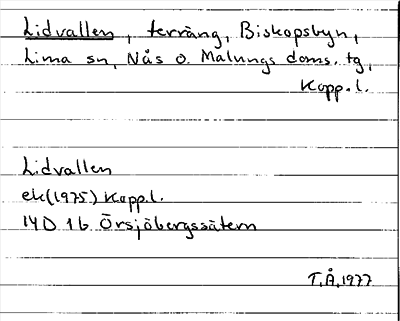 Lidvallen, terräng, Biskopsbyn,
Lima sn, Nås o. Malungs doms. tg,
Kopp. l.
Lidvallen
ek(1975) Kopp.l.
14D 1b Örsjöbergssätern
T.Å.1977